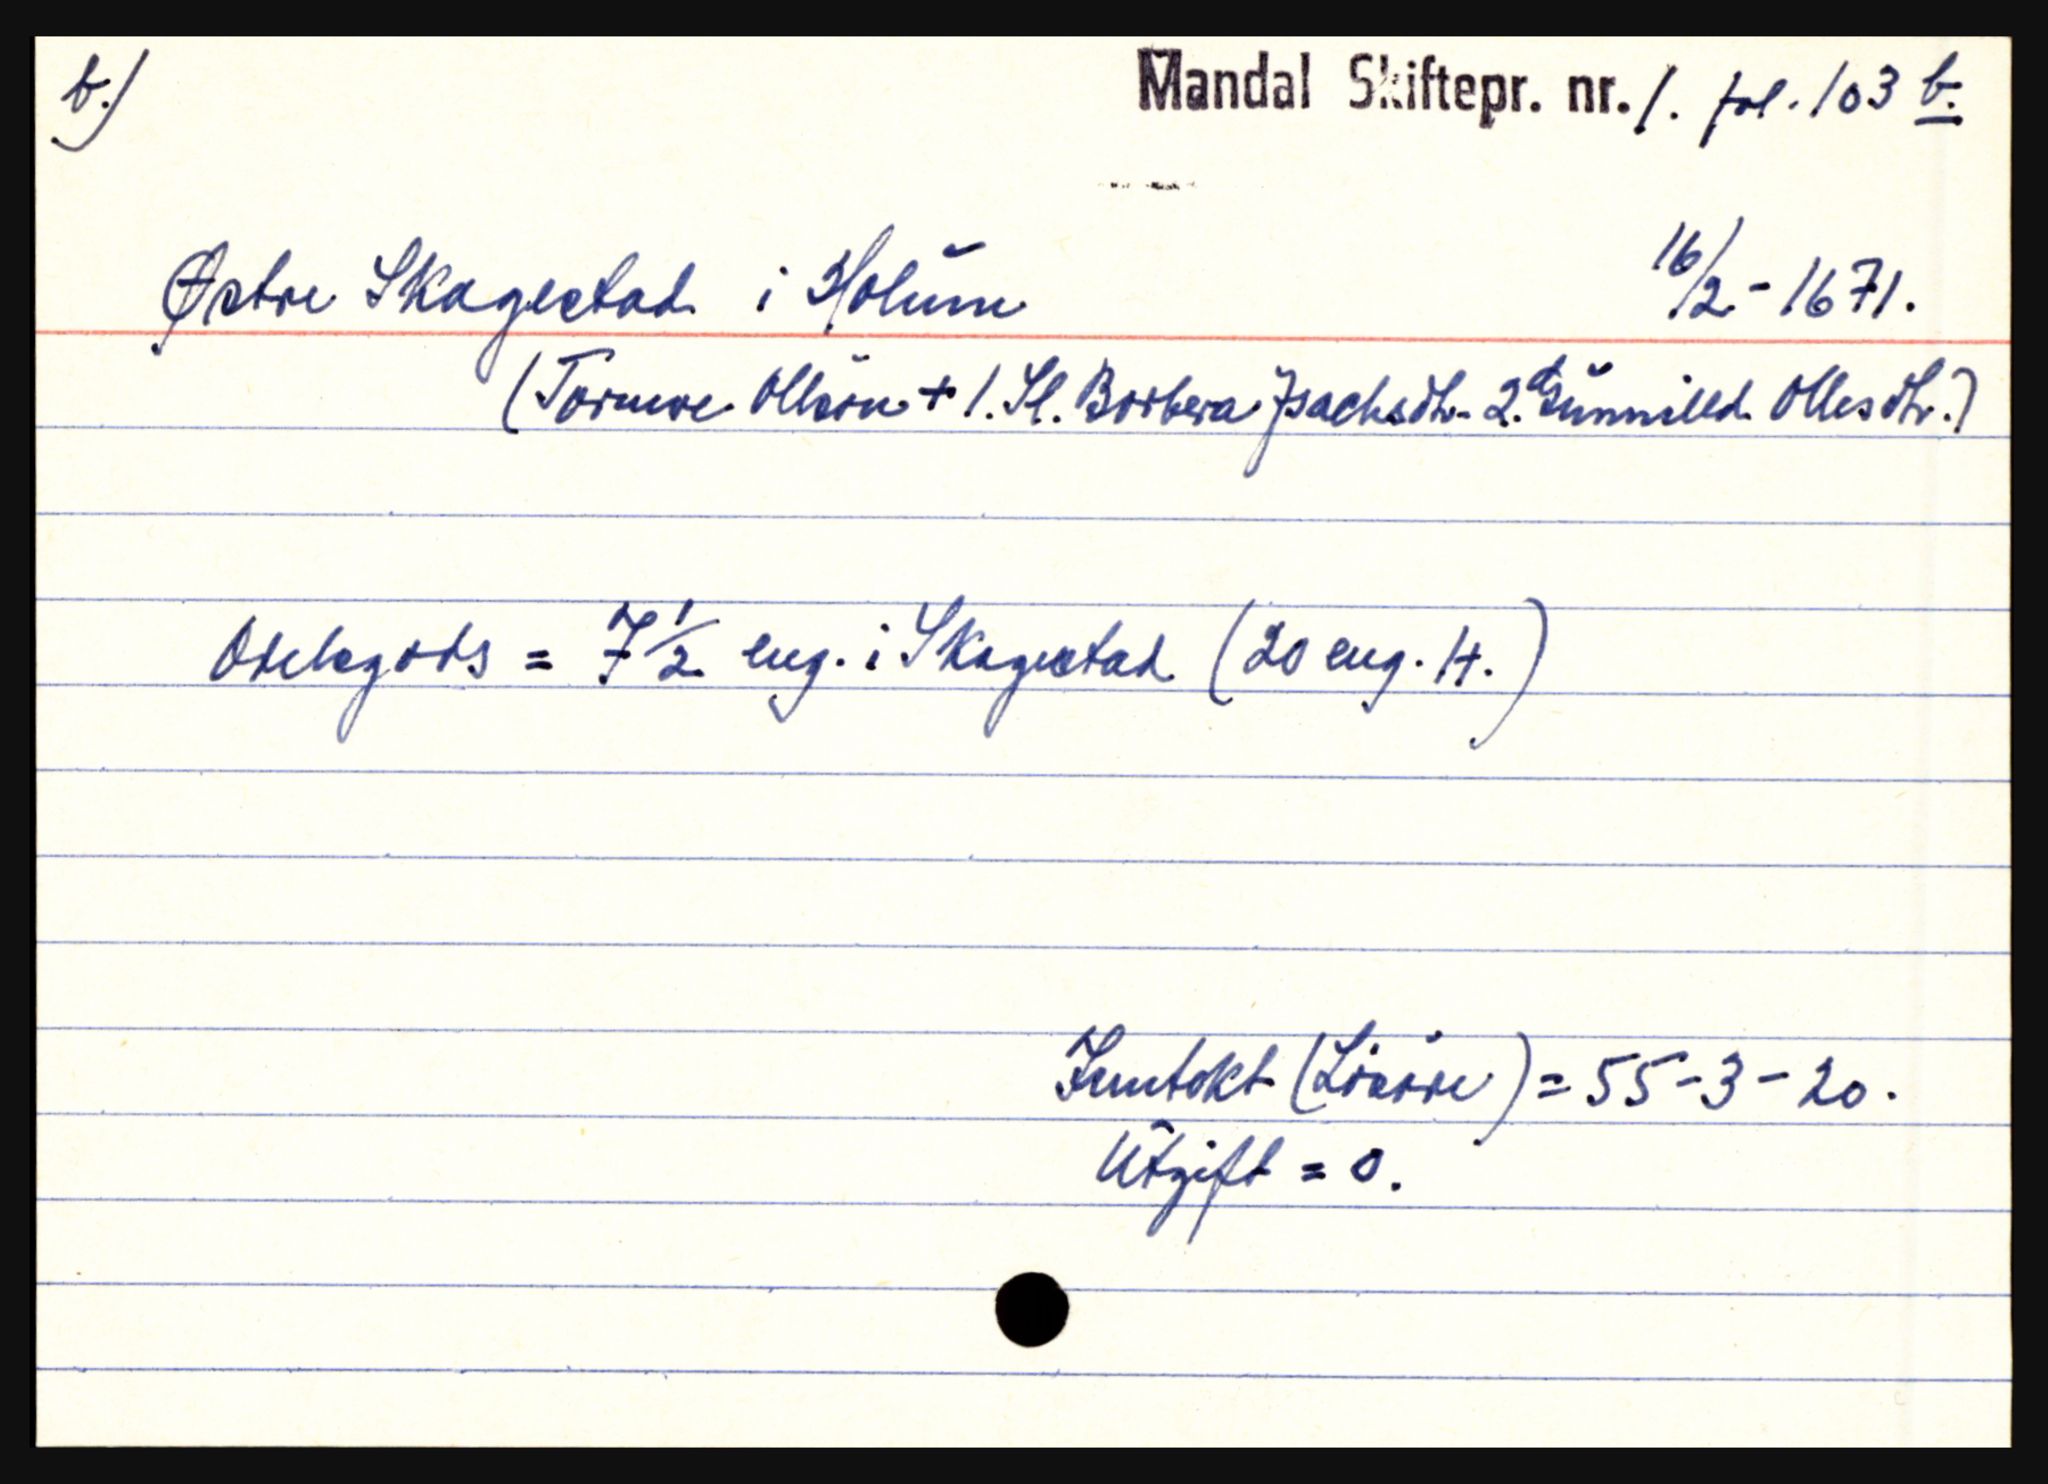 b.)
Mandal Skiftepr. nr. 1. fol. 103 b.
Østre Skagestad i Holum 16/2 - 1671.
(Tormoe Ollsøn + 1. Sl. Borbera Jsachsdtr. 2. Gunnilld Ollesdtr.)
Odelsgods = 7 1/2 eng. i Skagestad (20 eng. H.)
Inntekt (Lösöre) = 55 - 3 - 20.
Utgift = 0.